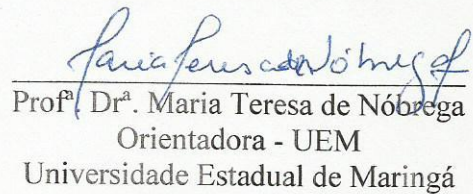 Maria Teresa de Nóbrega
Profª. Drª. Maria Teresa de Nóbrega
Orientadora - UEM
Universidade Estadual de Maringá